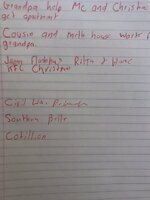 Grandpa help Mc and Christine
get apartment
Cousin and meth house work f
grandpa.
Jean Rita + Blanc
KFC Christmas
Civil War
Southern Belle
Cotillion